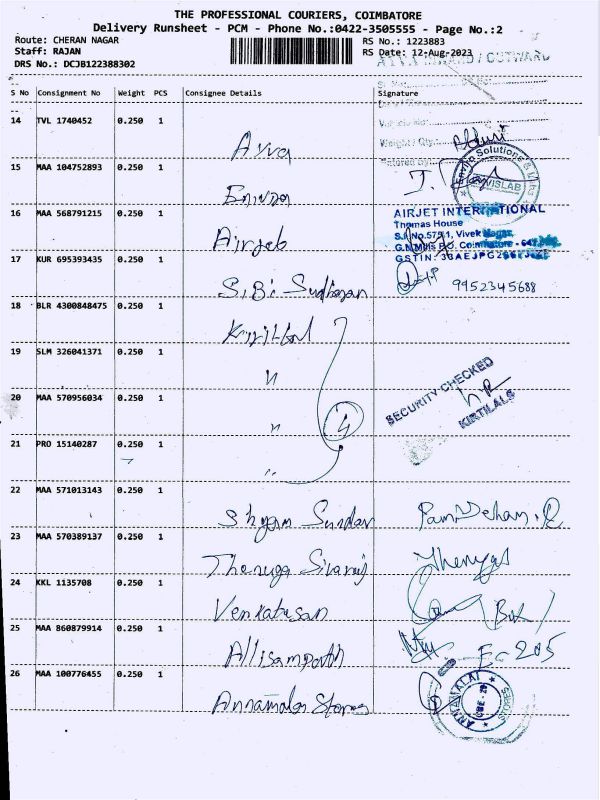 THE PROFESSIONAL COURIERS, COIMBATORE
Delivery Runsheet - PCM - Phone No.:0422-3505555 - Page No.:2
Route: CHERAN NAGAR
Staff: RAJAN
DRS No.: DCJB122388302
RS No.: 1223883
RS Date: 12-Aug-2023
S No Consignment No Weight PCS Consignee Details Signature
14 TVL 1740452 0.250 1
15 MAA 104752893 0.250 1
16 MAA 568791215 0.250 1 Airjet
AIRJET INTERNATIONAL
Thomas House
S.F.No.575/1, Vivek Nagar,
G.N.Mills P.O. Coimbatore - 641
17 KUR 695393435 0.250 1 SiBi Sudharsan
9952345688
18 BLR 4300848475 0.250 1 Kirtilal
19 SLM 326041371 0.250 1 "
20 MAA 570956034 0.250 1 "
4
SECURITY CHECKED
KIRTILALS
21 PRO 15140287 0.250 1 "
22 MAA 571013143 0.250 1 Shyam Sundar
23 MAA 570389137 0.250 1 Thenuga Sivaraj Thenuga
24 KKL 1135708 0.250 1 Venkatesan
25 MAA 860879914 0.250 1 E-205
26 MAA 100776455 0.250 1 Annamalai Stores
ANNAMALAI STORES
CBE - 29